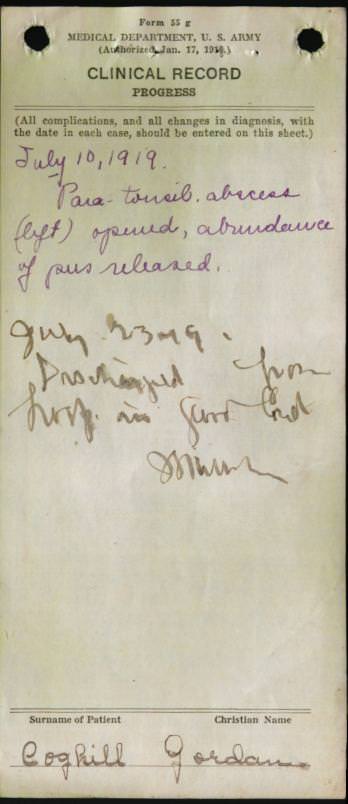 Form 55 g
MEDICAL DEPARTMENT, U. S. ARMY
(Authorized Jan. 17, 1918.)
CLINICAL RECORD
PROGRESS
(All complications, and all changes in diagnosis, with
the date in each case, should be entered on this sheet.)
July 10, 1919.
Para-tonsil. abscess
(left) opened, abundance
of pus released.
July 23-19.
Discharged from
hosp. in Good Cond
Surname of Patient Christian Name
Coghill Gordan